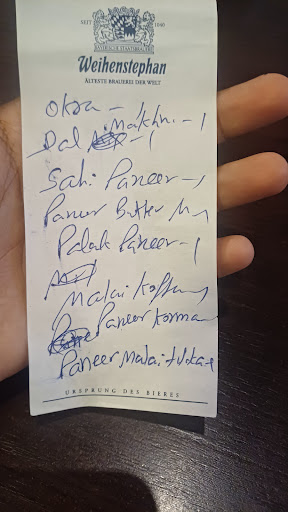 SEIT 1040
BAYERISCHE STAATSBRAUEREI
Weihenstephan
ÄLTESTE BRAUEREI DER WELT
Okra - 1
Dal Makhni - 1
- 1
Sahi Paneer - 1
Paneer Butter M - 1
Palak Paneer - 1
Malai Kofta
Paneer Korma
Paneer Malai tikka - 1
URSPRUNG DES BIERES